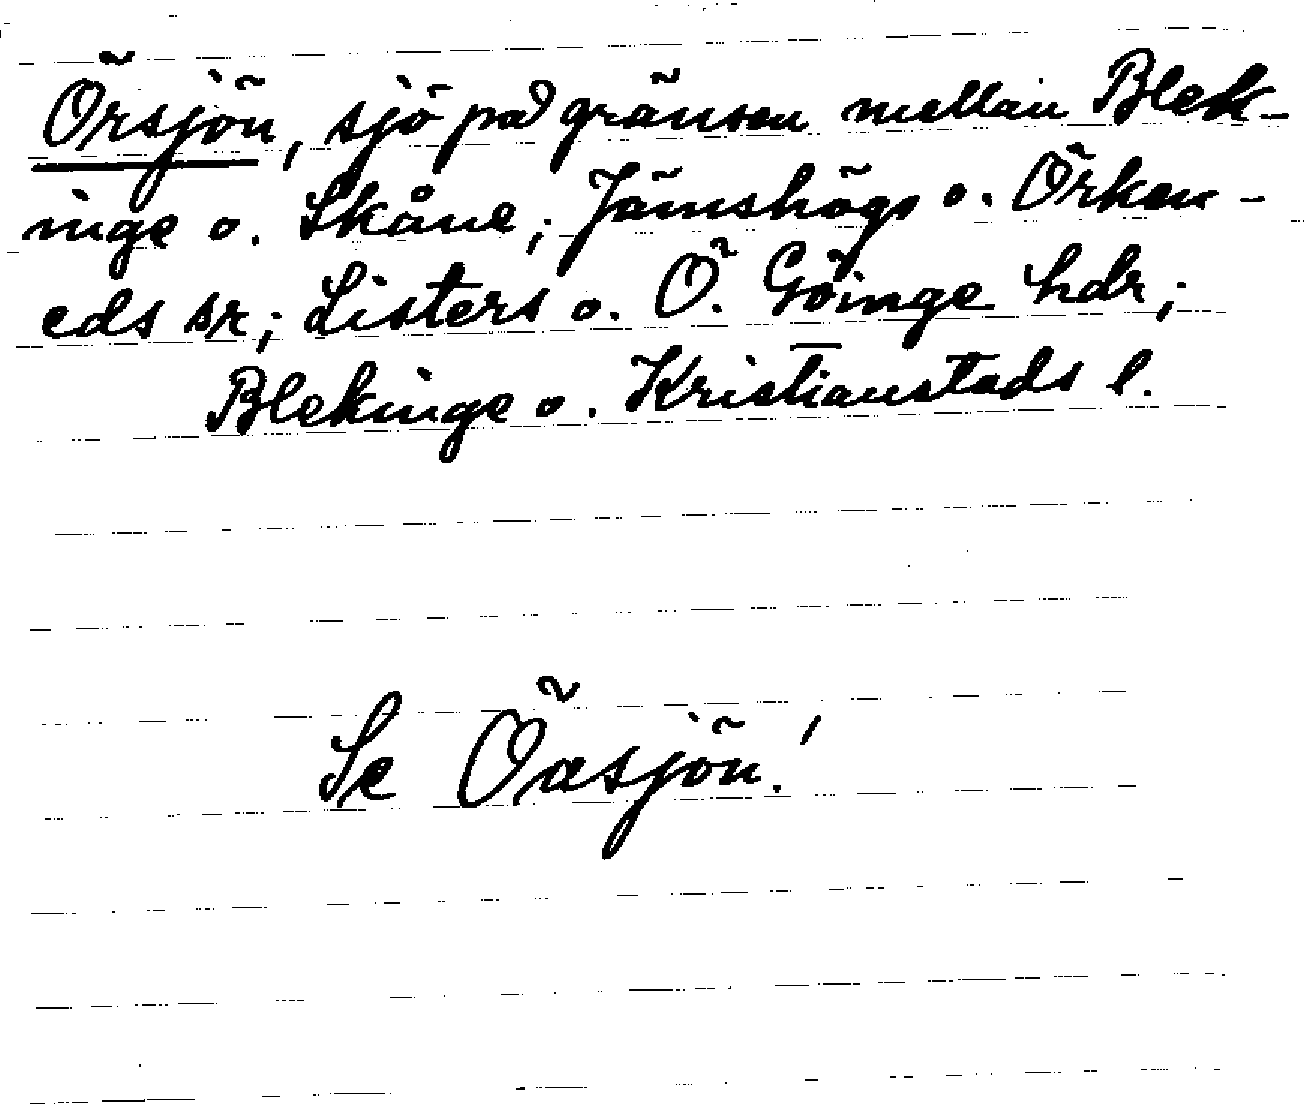 Örsjön, sjö på gränsen mellan Blek-
inge o. Skåne; Jämshögs o. Örken-
eds sr; Listers o. Ö. Göinge hdr;
Blekinge o. Kristianstads l.
Se Öasjön!